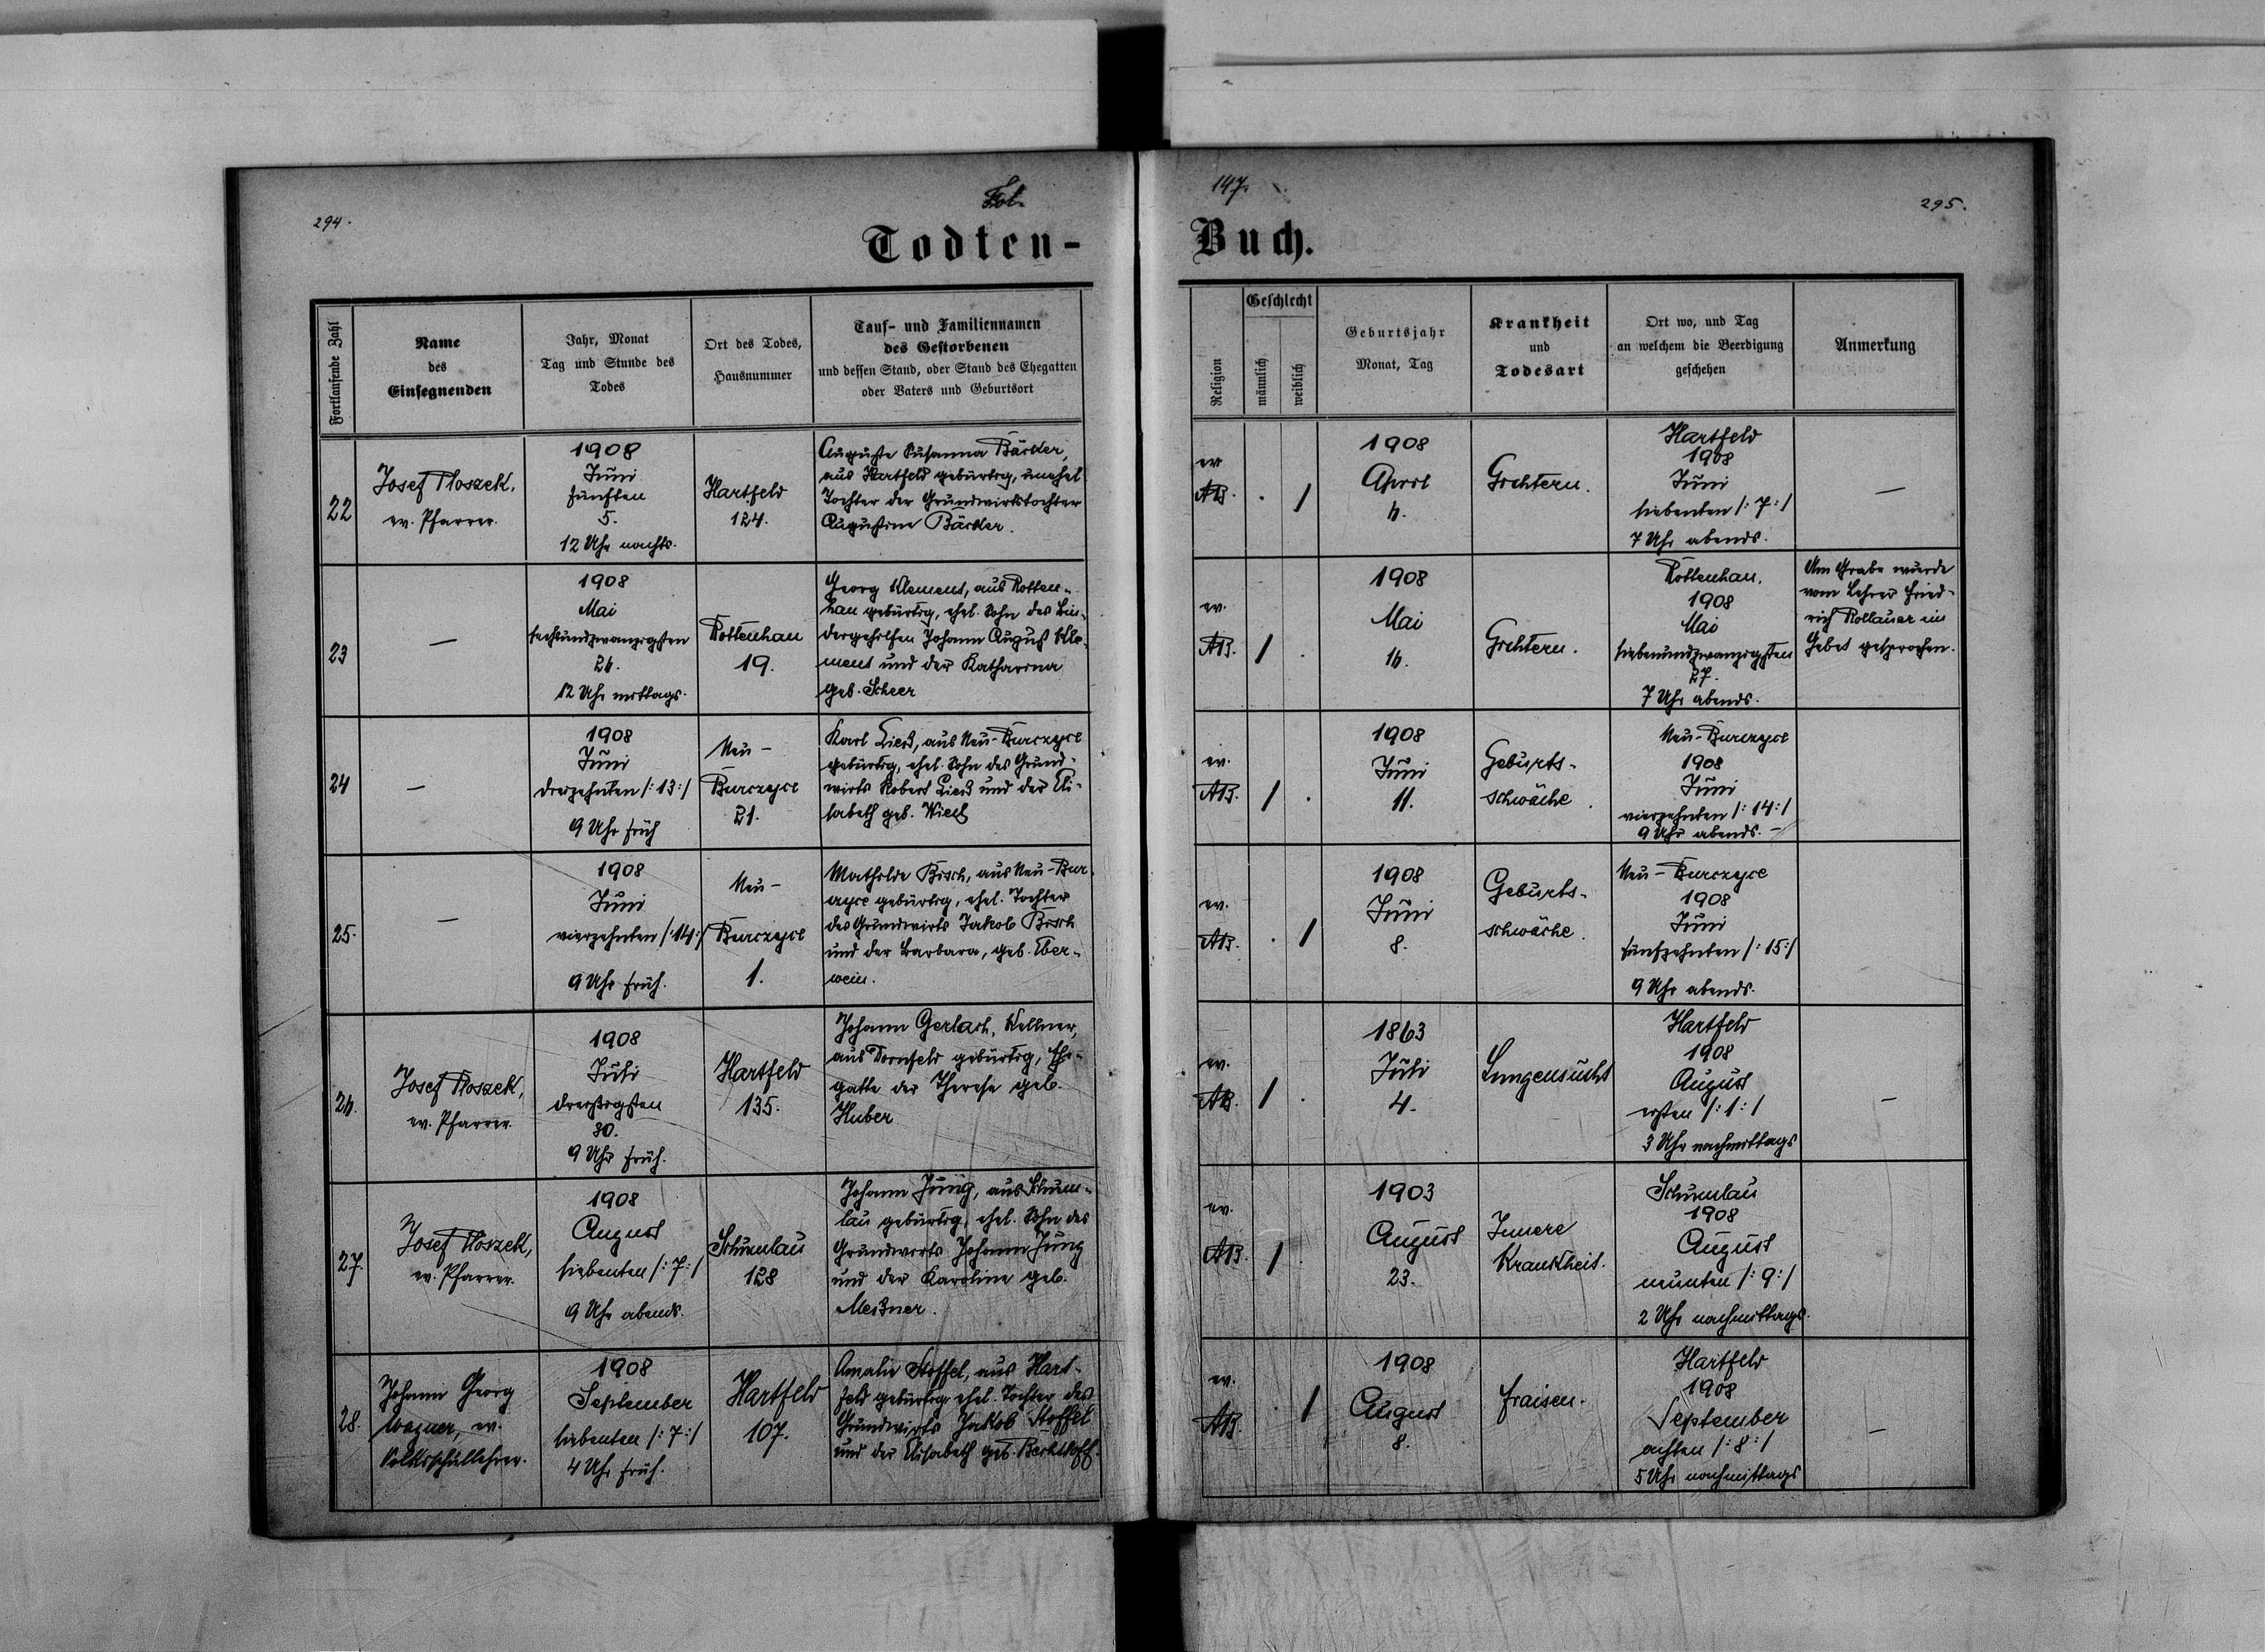 294.
Fol.
147.
295.
Todten-
Buch.
Fortlaufende Zahl
Name
des
Einsegnenden
Jahr, Monat
Tag und Stunde des
Todes
Ort des Todes,
Hausnummer
Tauf- und Familiennamen
des Gestorbenen
und dessen Stand, oder Stand des Ehegatten
oder Vaters und Geburtsort
Religion
Geschlecht
männlich
weiblich
Geburtsjahr
Monat, Tag
Krankheit
und
Todesart
Ort wo, und Tag
an welchem die Beerdigung
geschehen
Anmerkung
22
Josef Ploszek,
ev. Pfarrer.
1908
Juni
fünften
5.
12 Uhr nachts.
Hartfeld
124.
Auguste Susanna Bäcker,
aus Hartfeld gebürtig, unehel
Tochter der Grundwirtstochter
Augustine Bäcker.
ev
AB.
. /
1908
April
6.
Gichtern.
Hartfeld
1908
Juni
siebenten /: 7 :/
7 Uhr abends.
—
23
—
1908
Mai
sechsundzwanzigsten
26.
12 Uhr mittags.
Rottenhan
19.
Georg Klement, aus Rotten-
han gebürtig, ehel. Sohn des Bin-
dergehilfen Johann August Kle-
ment und der Katharina
geb. Scheer
ev.
AB.
/ .
1908
Mai
16.
Gichtern.
Rottenhan.
1908
Mai
siebenundzwanzigsten
27.
7 Uhr abends.
Am Grabe wurde
vom Lehrer Fried-
rich Rollauer ein
Gebet gesprochen.
24
—
1908
Juni
dreizehnten /: 13 :/
9 Uhr früh
Neu-
Burczyce
21.
Karl Ließ, aus Neu-Burczyce
gebürtig, ehel. Sohn des Grund-
wirts Robert Ließ und der Eli-
sabeth geb. Wiedl
ev.
AB.
/ .
1908
Juni
11.
Geburts-
schwäche.
Neu-Burczyce
1908
Juni
vierzehnten /: 14 :/
9 Uhr abends. -
25.
—
1908
Juni
vierzehnten /: 14 :/
9 Uhr früh.
Neu-
Burczyce
1.
Mathilde Bisch, aus Neu-Bur
czyce gebürtig, ehel. Tochter
des Grundwirts Jakob Bisch
und der Barbara, geb. Eber-
wein.
ev.
AB.
. /
1908
Juni
8.
Geburts-
schwäche.
Neu-Burczyce
1908
Juni
fünfzehnten /: 15 :/
9 Uhr abends.
26.
Josef Ploszek,
ev. Pfarrer.
1908
Juli
dreißigsten
30.
9 Uhr früh.
Hartfeld
135.
Johann Gerlach, Kellner,
aus Dornfeld gebürtig, Ehe-
gatte der Therese geb.
Huber
ev.
AB.
/ .
1863
Juli
4.
Lungensucht
Hartfeld
1908
August
ersten /: 1 :/
3 Uhr nachmittags
—
27.
Josef Ploszek,
ev. Pfarrer.
1908
August
siebenten /: 7 :/
9 Uhr abends.
Schumlau
128
Johann Jung, aus Schum-
lau gebürtig, ehel. Sohn des
Grundwirts Johann Jung
und der Karoline geb.
Meißner.
ev.
AB.
/ .
1903
August
23.
Innere
Krankheit.
Schumlau
1908
August
neunten /: 9 :/
2 Uhr nachmittags.
28.
Johann Georg
Wagner, ev.
Volksschullehrer.
1908
September
siebenten /: 7 :/
4 Uhr früh.
Hartfeld
107.
Amalie Stoffel, aus Hart-
feld gebürtig, ehel. Tochter des
Grundwirts Jakob Stoffel
und der Elisabeth geb. Berkthoff.
ev.
AB.
. /
1908
August
8.
Fraisen.
Hartfeld
1908
September
achten /: 8 :/
5 Uhr nachmittags
—